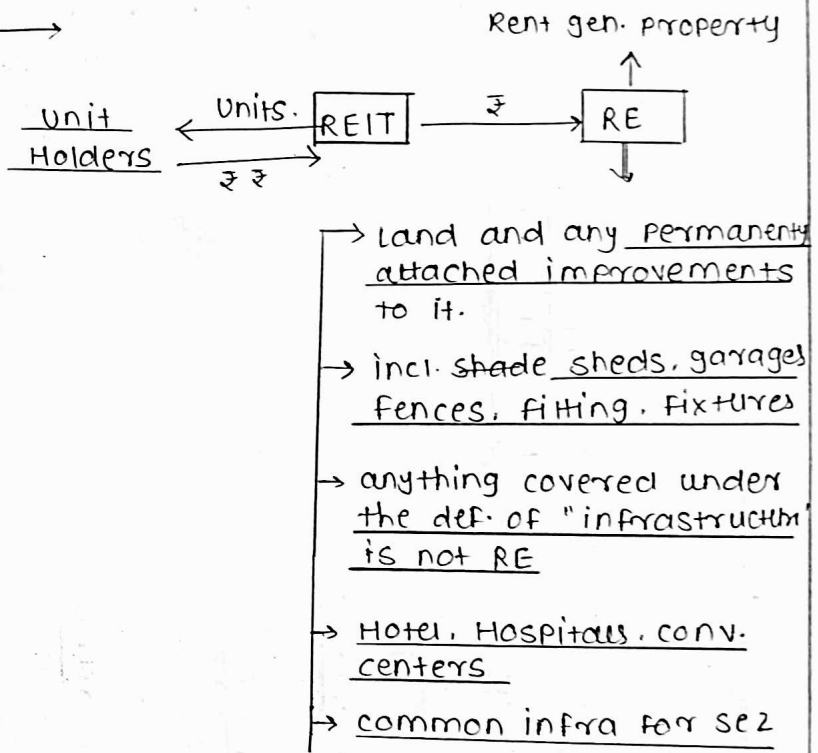 Rent gen. property
Unit Holders
Units.
₹ ₹
REIT
₹
RE
Land and any permanenty
attached improvements
to it.
incl. shade sheds, garages
Fences, fitting, Fixtures
anything covered under
the def. of "infrastructur"
is not RE
Hotel, Hospitals, conv.
centers
common infra for SEZ